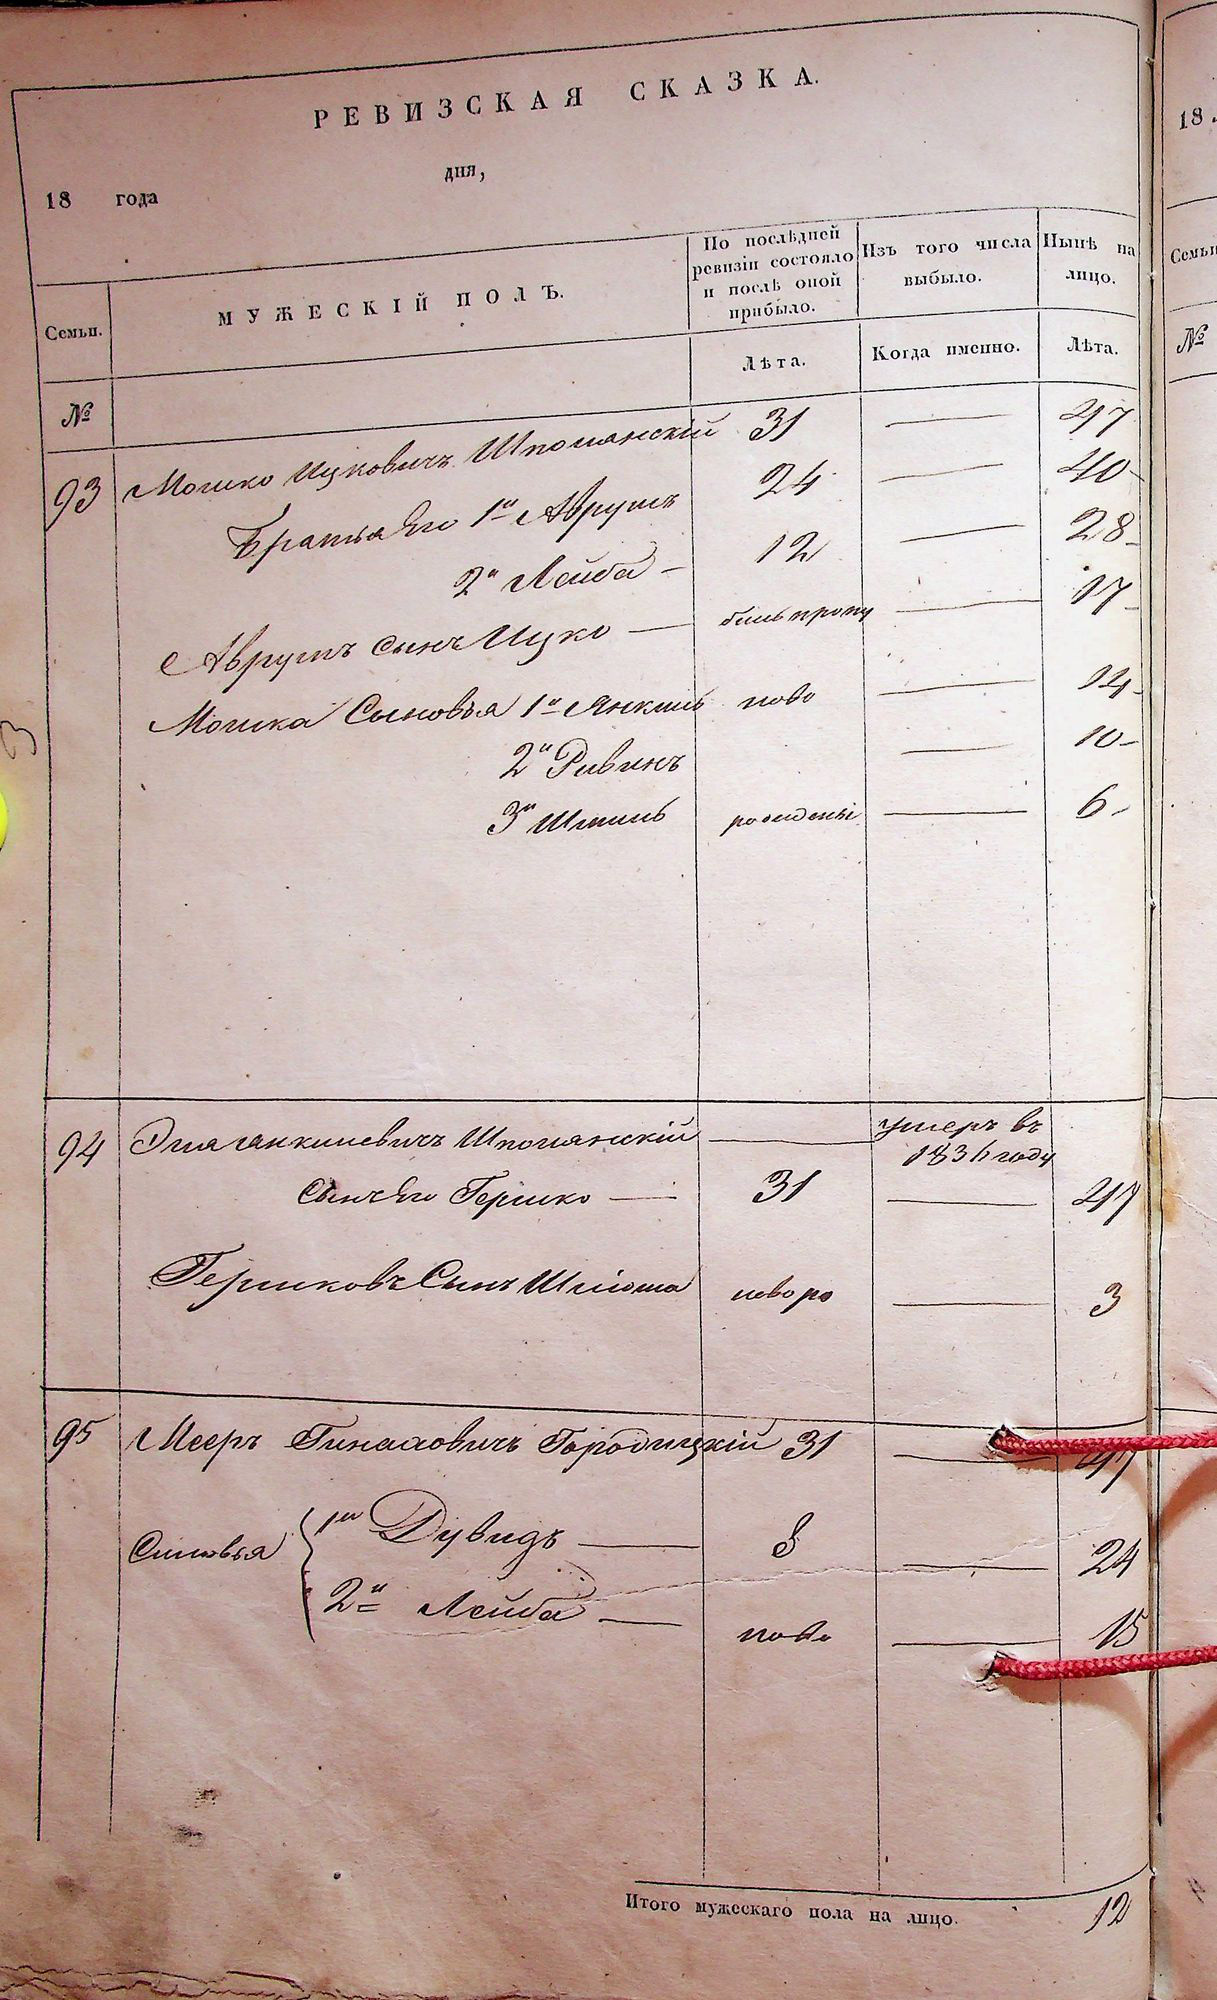 РЕВИЗСКАЯ СКАЗКА.
18 года дня,
18.
Семьи. МУЖЕСКІЙ ПОЛЪ. По послѣдней ревизіи состояло и послѣ оной прибыло. Изъ того числа выбыло. Нынѣ на лицо.
№ Лѣта. Когда именно. Лѣта.
№
93 Мошко Ицковичъ Шполянскій 31 — 47
Братья Его 1й Аврумъ 24 — 40
2й Лейба — 12 — 28
Аврумъ сынъ Ицко — былъ пропу — 17
Мошка Сыновья 1й Янкель ново — 14
2й Рувинъ — 10
3й рожденны — 6
94 Шполянскій — умеръ въ
183 году
сынъ Его Гершко — 31 — 47
Гершковъ Сынъ Шлёма ново ро — 3
95 Мееръ Городицкій 31 — 47
Сыновья 1й Дувидъ — 8 — 24
2й Лейба — ново — 15
Итого мужескаго пола на лицо. 12